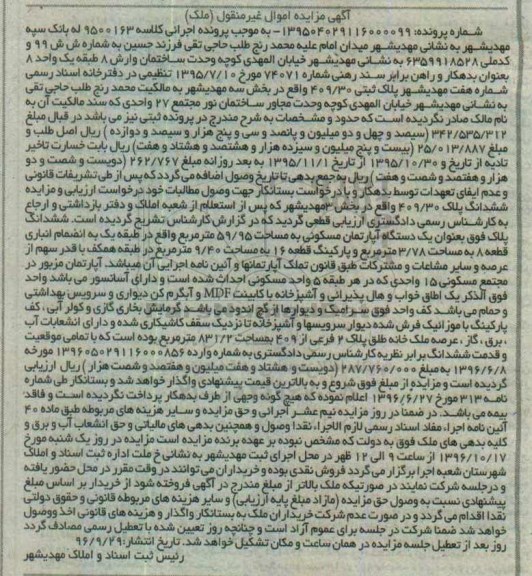 آگهی مزایده اموال غیرمنقول (ملک)
شماره پرونده: ۱۳۹۵۰۴۰۲۹۱۱۶۰۰۰۰۹۹ - به موجب پرونده اجرائی کلاسه ۹۵۰۰۱۶۳ له بانک سپه
مهدیشهر به نشانی مهدیشهر میدان امام علیه محمد رنج طلب حاجی تقی فرزند حسین به شماره ش ش ۹۹ و
کدملی ۶۳۵۹۹۱۸۵۲۸ به نشانی مهدیشهر خیابان المهدی کوچه وحدت ساختمان وارش ۸ طبقه یک واحد ۸
بعنوان بدهکار و راهن برابر سند رهنی شماره ۷۴۰۷۱ مورخ ۱۳۹۵/۷/۱۰ تنظیمی در دفترخانه اسناد رسمی
شماره هفت مهدیشهر پلاک ثبتی ۴۰۹/۳۰ واقع در بخش سه مهدیشهر به مالکیت محمد رنج طلب حاجی تقی
به نشانی مهدیشهر خیابان المهدی کوچه وحدت مجاور ساختمان نور مجتمع ۲۷ واحدی که سند مالکیت آن به
نام مالک صادر گردیده است که حدود و مشخصات به شرح مندرج در پرونده ثبتی نیز می باشد در قبال مبلغ
۳۴۲/۵۳۵/۳۱۲ (سیصد و چهل و دو میلیون و پانصد و سی و پنج هزار و سیصد و دوازده ) ریال اصل طلب و
مبلغ ۲۵/۰۱۳/۸۸۷ (بیست و پنج میلیون و سیزده هزار و هشتصد و هشتاد و هفت) ریال بابت خسارت تاخیر
تادیه از تاریخ و ۱۳۹۵/۱۰/۳۰ از تاریخ ۱۳۹۵/۱۱/۱ به بعد روزانه مبلغ ۲۶۲/۷۶۷ (دویست و شصت و دو
هزار و هفتصد و شصت و هفت ) ریال به جمع بدهی تا تاریخ وصول اضافه می گردد که پس از طی تشریفات قانونی
و عدم ایفای تعهدات توسط بدهکار و با درخواست بستانکار جهت وصول مطالبات خود درخواست ارزیابی و مزایده
ششدانگ پلاک ۴۰۹/۳۰ واقع در بخش ۳ مهدیشهر که پس از استعلام از شعبه املاک و دفتر بازداشتی و ارجاع
به کارشناس رسمی دادگستری ارزیابی قطعی گردید که در گزارش کارشناس تشریح گردیده است. ششدانگ
پلاک فوق بعنوان یک دستگاه آپارتمان مسکونی به مساحت ۵۹/۹۵ مترمربع واقع در طبقه یک به انضمام انباری
قطعه ۸ به مساحت ۳/۷۸ مترمربع و پارکینگ قطعه ۱۶ به مساحت ۹/۴۰ مترمربع در طبقه همکف با قدر سهم از
عرصه و سایر مشاعات و مشترکات طبق قانون تملک آپارتمانها و آئین نامه اجرایی آن میباشد. آپارتمان مزبور در
مجتمع مسکونی ۱۵ واحدی که در هر طبقه ۵ واحد مسکونی احداث شده است و دارای آسانسور می باشد واحد
فوق الذکر یک اطاق خواب و هال پذیرائی و آشپزخانه با کابینت MDF و آبگرم کن دیواری و سرویس بهداشتی
و حمام می باشد کف واحد فوق سرامیک و دیوارها از گچ اندود می باشد گرمایش بخاری گازی و کولر آبی، کف
پارکینگ با موزائیک فرش شده دیوار سرویسها و آشپزخانه تا نزدیک سقف کاشیکاری شده و دارای انشعابات آب
، برق ، گاز ، عرصه ملک خانه طلق پلاک ۲ فرعی از ۴۰۹ بمساحت ۸۳۱/۲ مترمربع بوده است که با تمامی موقعیت
و قدمت ششدانگ برابر نظریه کارشناس رسمی دادگستری به شماره وارده ۱۳۹۶۰۵۰۲۹۱۱۶۰۰۰۸۵۶ مورخه
۱۳۹۶/۶/۸ به مبلغ ۲۸۷/۷۶۰/۰۰۰ (دویست و هشتاد و هفت میلیون و هفتصد و شصت هزار) ریال ارزیابی
گردیده است و مزایده از مبلغ فوق شروع و به بالاترین قیمت پیشنهادی واگذار خواهد شد و بستانکار طی شماره
نامه ۳۱۳ مورخ ۱۳۹۶/۶/۲۷ اعلام نموده که هیچ گونه وجهی از طرف بدهکار پرداخت نگردیده است و فاقد
بیمه می باشد. در ضمن در روز مزایده نیم عشر اجرائی و حق مزایده و سایر هزینه های مربوطه طبق ماده ۴۰
آئین نامه اجراء مفاد اسناد رسمی لازم الاجراء نقدا وصول و همچنین بدهی های مالیاتی و حق انشعاب آب و برق و
کلیه بدهی های ملک فوق به دولت که مشخص نبوده بر عهده برنده مزایده است مزایده در روز یک شنبه مورخ
۱۳۹۶/۱۰/۱۷ از ساعت ۹ الی ۱۲ ظهر در محل اجرای ثبت مهدیشهر به نشانی خ ملت اداره ثبت اسناد و املاک
شهرستان شعبه اجرا برگزار می گردد فروش نقدی بوده و خریداران می توانند در وقت مقرر در محل حضور یافته
و در جلسه شرکت نمایند در صورتیکه ملک بالاتر از مبلغ مندرج در آگهی فروخته شود از خریدار بر اساس مبلغ
پیشنهادی نسبت به وصول حق مزایده (مازاد مبلغ پایه ارزیابی) و سایر هزینه های مربوطه قانونی و حقوق دولتی
نقدا اقدام می گردد و در صورت عدم شرکت خریداران ملک به بستانکار واگذار و هزینه های قانونی اخذ و وصول
خواهد شد ضمنا شرکت در جلسه برای عموم آزاد است و چنانچه روز تعیین شده با تعطیل رسمی مصادف گردد
روز بعد از تعطیل جلسه مزایده در همان ساعت و مکان تشکیل خواهد شد. تاریخ انتشار: ۹۶/۹/۲۹
رئیس ثبت اسناد و املاک مهدیشهر